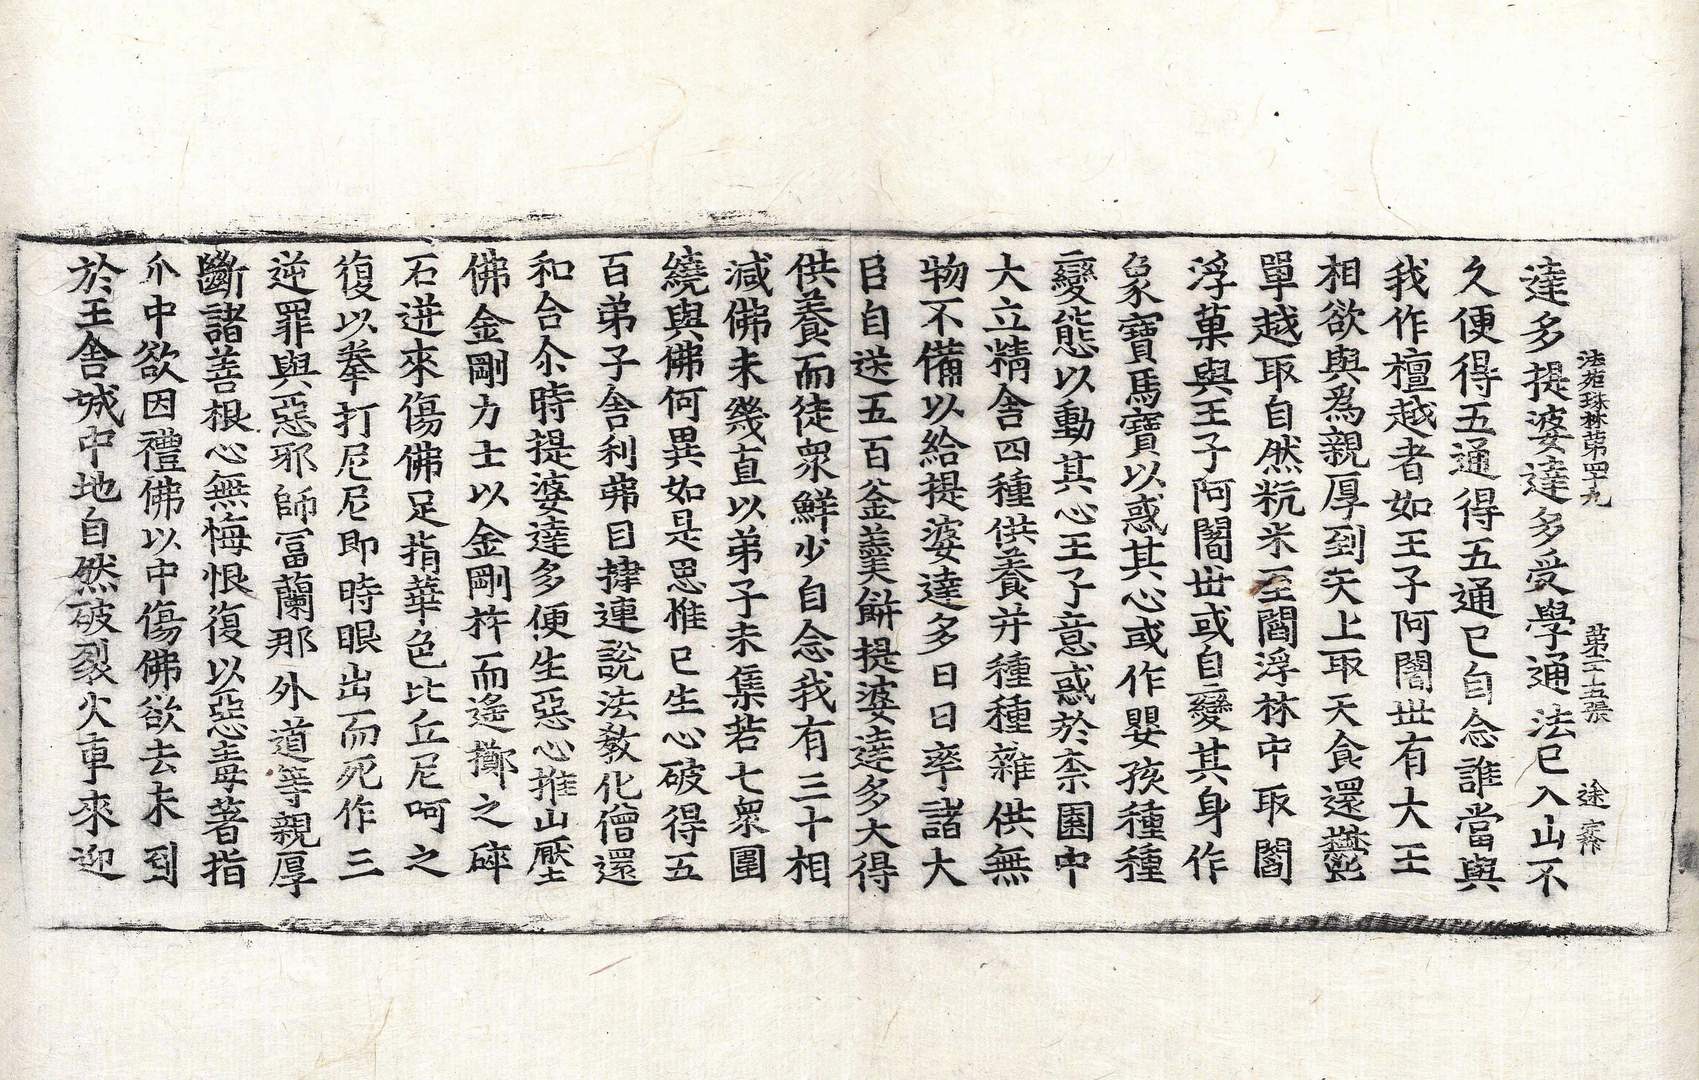 法苑珠林第四十九　第二十五張　途
達多提婆達多受學通法已入山不
久便得五通得五通已自念誰當與
我作檀越者如王子阿闍世有大王
相欲與爲親厚到天上取天食還欝
單越取自然粳米至閻浮林中取閻
浮菓與王子阿闍世或自變其身作
象寶馬寶以惑其心或作嬰孩種種
變態以動其心王子意惑於柰園中
大立精舍四種供養并種種雜供無
物不備以給提婆達多日日率諸大
臣自送五百釜羹餅提婆達多大得
供養而徒衆鮮少自念我有三十相
減佛未幾直以弟子未集若七衆圍
繞與佛何異如是思惟已生心破得五
百弟子舍利弗目揵連說法教化僧還
和合尒時提婆達多便生惡心推山壓
佛金剛力士以金剛杵而遙擲之碎
石迸來傷佛足指華色比丘尼呵之
復以拳打尼尼即時眼出而死作三
逆罪與惡邪師冨蘭那外道等親厚
斷諸善根心無悔恨復以惡毒著指
爪中欲因禮佛以中傷佛欲去未到
於王舍城中地自然破裂火車來迎